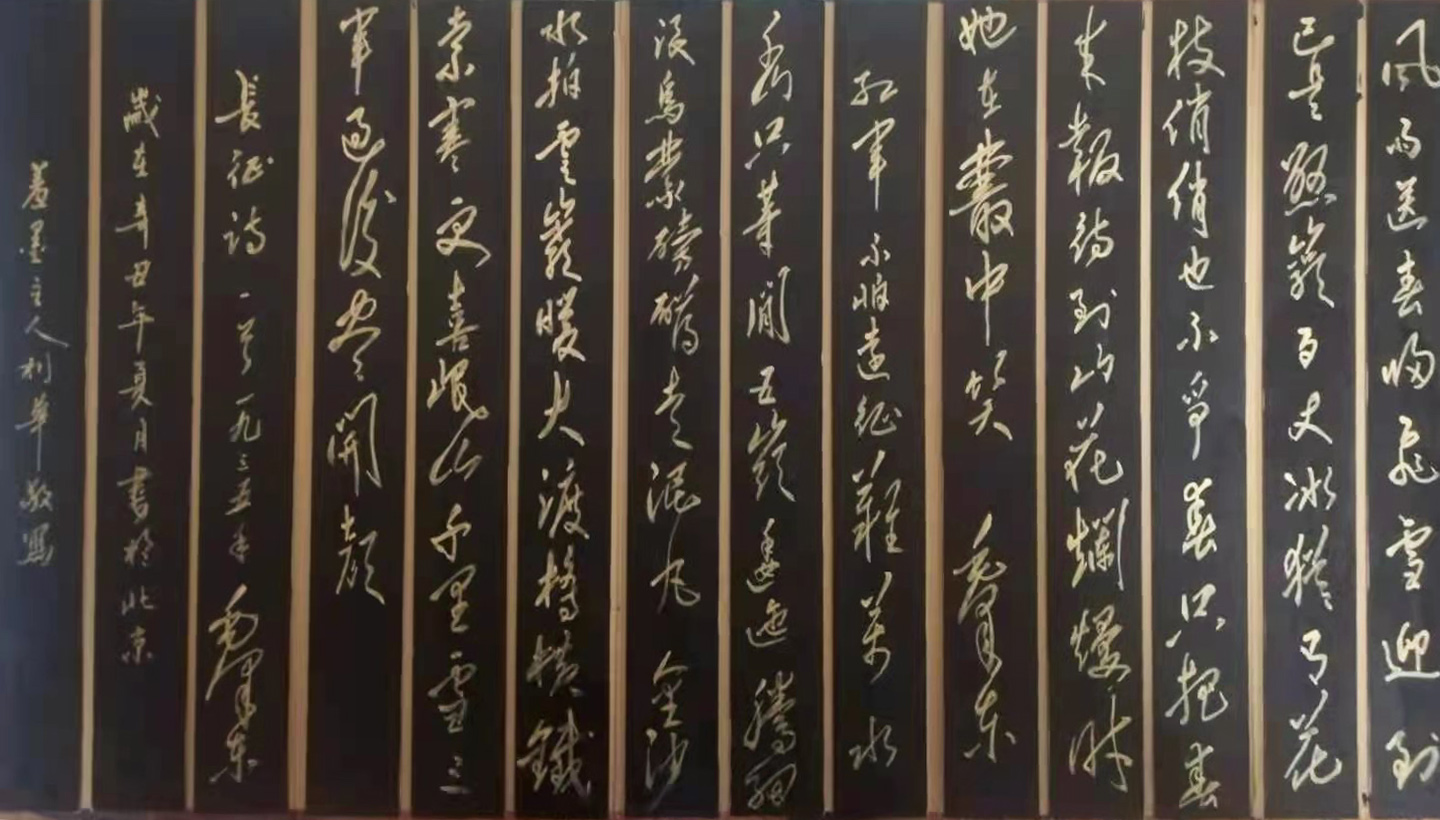 风雨送春歸飛雪迎到
已是懸巖百丈冰猶有花
枝俏俏也不爭春只把春
来報待到山花爛熳時
她在叢中笑 毛澤東
紅軍不怕遠征難萬水
千山只等閒五嶺逶迤騰細
浪烏蒙磅礴走泥丸金沙
水拍雲巖暖大渡橋橫鐵
索寒更喜岷山千里雪三
軍過後盡開顏
長征詩一首一九三五年 毛澤東
歲在辛丑年夏月書於北京
羞墨主人利華敬寫